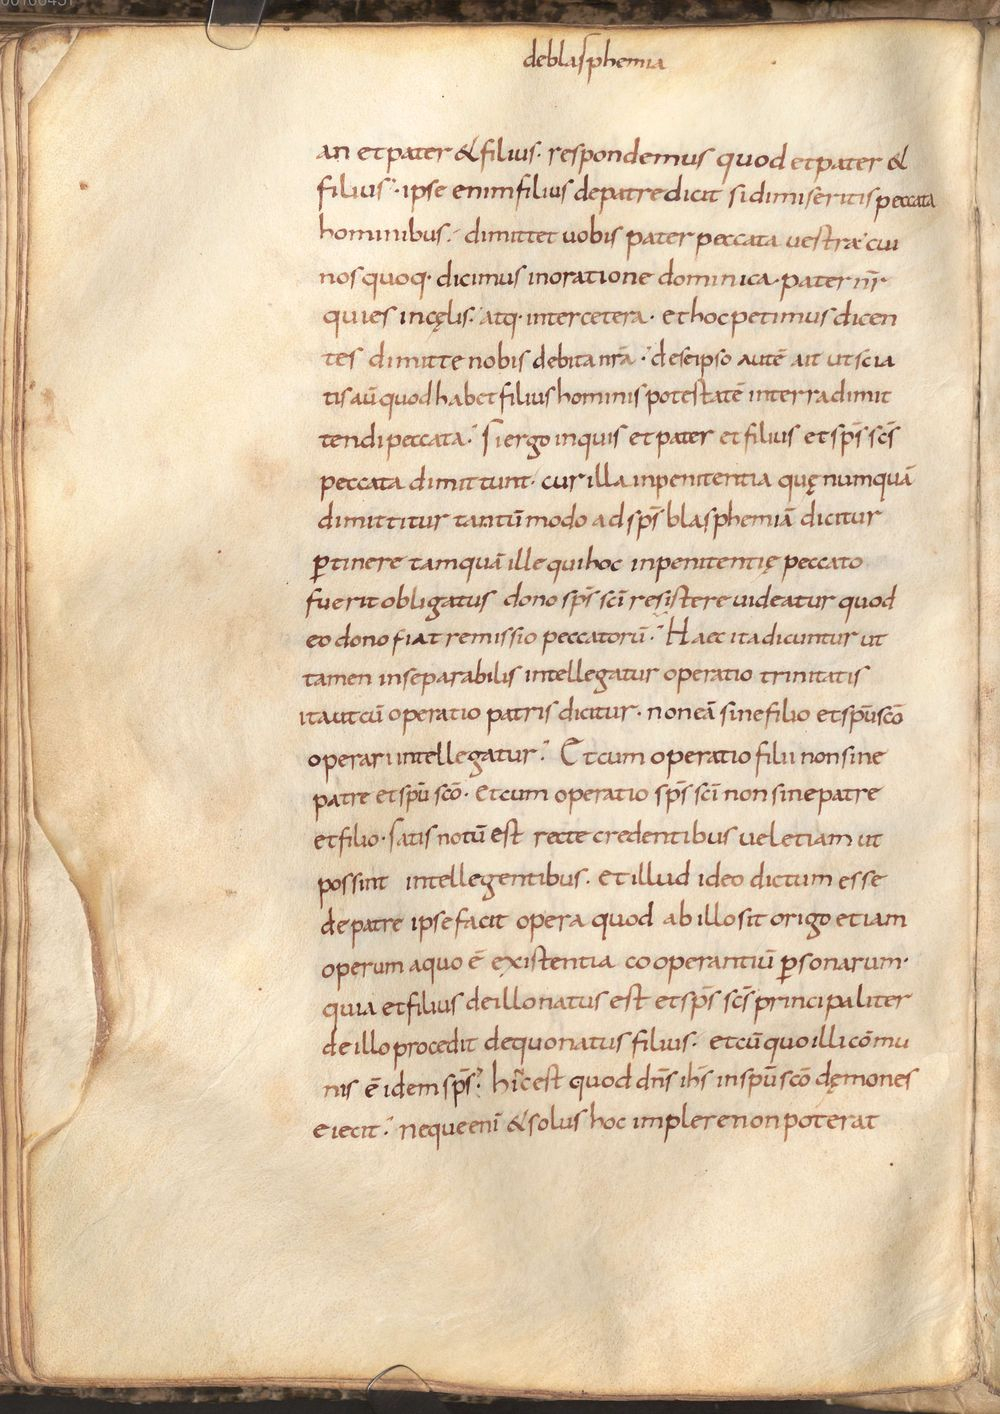 deblasphemia
an et pater & filius· respondemus quod et pater &
filius·· ipse enim filius de patre dicit si dimiseritis peccata
hominibus·´ dimittet uobis pater peccata uestra· cui
nos quoq· dicimus in oratione dominica· pater nr̄
qui es in cęlis· atq· inter cetera· et hoc petimus dicen
tes dimitte nobis debita nr̄a·´ de se ipso autē ait ut scia
tis aū quod habet filius hominis potestatē in terra dimit
tendi peccata·´ Si ergo inquis et pater et filius et sp̄s sc̄s
peccata dimittunt· cur illa inpenitentia quę numquā
dimittitur tantū modo ad sp̄s blasphemiā dicitur
ꝑtinere tamquā ille qui hoc inpenitentię peccato
fuerit obligatus dono sp̄s sc̄i resistere uideatur quod
eo dono fiat remissio peccatorū·´ Haec ita dicuntur ut
tamen inseparabilis intellegatur operatio trinitatis
ita ut cū operatio patris dicitur· non eā sine filio et sp̄u sc̄o
operari intellegatur·´ Et cum operatio filii non sine
patre et sp̄u sc̄o· et cum operatio sp̄s sc̄i non sine patre
et filio· satis notū est recte credentibus uel etiam ut
possint intellegentibus· et illud ideo dictum esse
de patre ipse facit opera quod ab illo sit origo etiam
operum a quo ē existentia cooperantiū ꝑsonarum·
quia et filius de illo natus est et sp̄s sc̄s principaliter
de illo procedit de quo natus filius· et cū quo illi cōmu
nis ē idem sp̄s· hic est quod dn̄s ih̄s in sp̄u sc̄o dęmones
eiecit·´ neque enī & solus hoc implere non poterat